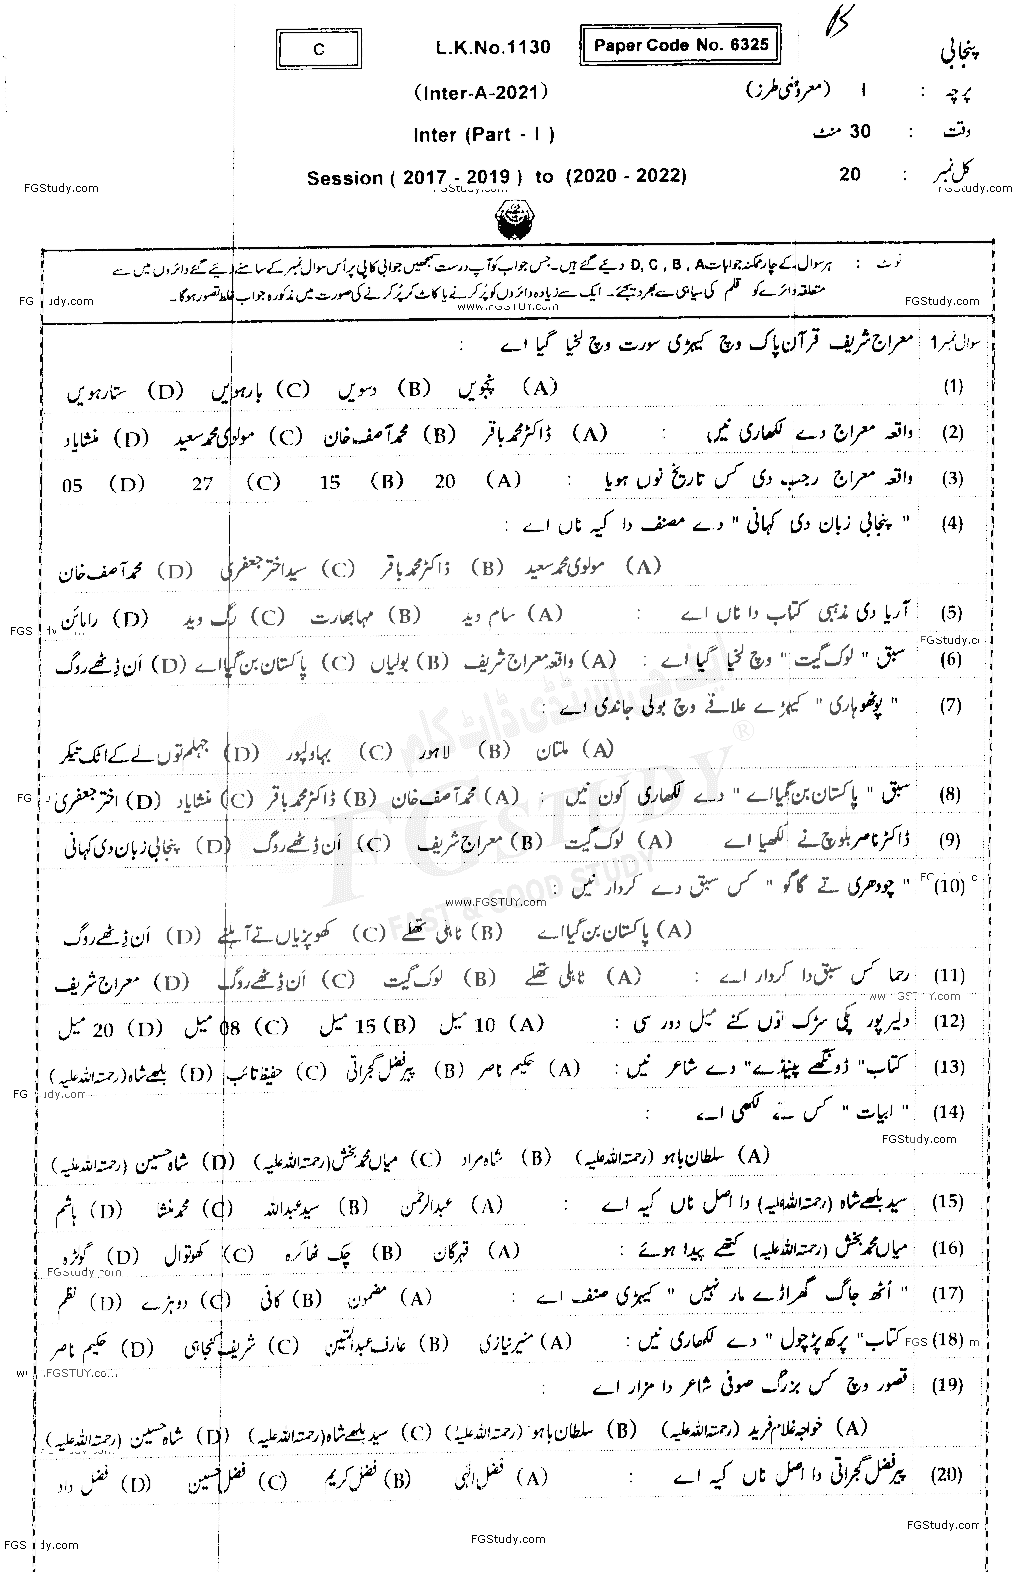 پنجابی Paper Code No. 6325 L.K.No.1130 C
پرچہ : I (معروضی طرز) (Inter-A-2021)
وقت : 30 منٹ Inter (Part - I)
کل نمبر : 20 Session ( 2017 - 2019 ) to (2020 - 2022)
FGStudy.com FGStudy.com FGStudy.com
نوٹ : ہر سوال کے چار ممکنہ جوابات D, C, B, A دیئے گئے ہیں۔ جس جواب کو آپ درست سمجھیں جوابی کاپی پر اُس سوال نمبر کے سامنے دیئے گئے دائروں میں سے
متعلقہ دائرے کو قلم کی سیاہی سے بھر دیجئے۔ ایک سے زیادہ دائروں کو پُر کرنے یا کاٹ کر پُر کرنے کی صورت میں مذکورہ جواب غلط تصور ہوگا۔
FGStudy.com www.FGSTUY.com
سوال نمبر 1 معراج شریف قرآن پاک وچ کیہڑی سورت وچ لکھیا گیا اے :
(1) (A) پنجویں (B) دسویں (C) بارہویں (D) ستارہویں
(2) واقعہ معراج دے لکھاری نیں : (A) ڈاکٹر محمد باقر (B) محمد آصف خان (C) مولوی محمد سعید (D) منشایاد
(3) واقعہ معراج رجب دی کس تاریخ نوں ہویا : (A) 20 (B) 15 (C) 27 (D) 05
(4) " پنجابی زبان دی کہانی " دے مصنف دا کیہ ناں اے :
(A) مولوی محمد سعید (B) ڈاکٹر محمد باقر (C) سید اختر جعفری (D) محمد آصف خان
(5) آریا دی مذہبی کتاب دا ناں اے : (A) سام وید (B) مہابھارت (C) رگ وید (D) رامائن
(6) سبق " لوک گیت " وچ لکھیا گیا اے : (A) واقعہ معراج شریف (B) بولیاں (C) پاکستان بن گیا اے (D) اَن ڈِٹھے روگ
(7) " پوٹھوہاری " کیہڑے علاقے وچ بولی جاندی اے :
(A) ملتان (B) لاہور (C) بہاولپور (D) جہلم توں لے کے اٹک تیکر
(8) سبق " پاکستان بن گیا اے " دے لکھاری کون نیں : (A) محمد آصف خان (B) ڈاکٹر محمد باقر (C) منشایاد (D) اختر جعفری
(9) ڈاکٹر ناصر بلوچ نے لکھیا اے (A) لوک گیت (B) معراج شریف (C) اَن ڈِٹھے روگ (D) پنجابی زبان دی کہانی
(10) " چودھری تے گاگو " کس سبق دے کردار نیں :
www.FGSTUY.com
(A) پاکستان بن گیا اے (B) ٹاہلی تھلے (C) کھوپڑیاں تے آہلنے (D) اَن ڈِٹھے روگ
(11) رحما کس سبق دا کردار اے : (A) ٹاہلی تھلے (B) لوک گیت (C) اَن ڈِٹھے روگ (D) معراج شریف
(12) دلیر پور پکی سڑک توں کنے میل دور سی : (A) 10 میل (B) 15 میل (C) 08 میل (D) 20 میل
(13) کتاب " ڈونگھے پینڈے " دے شاعر نیں : (A) حکیم ناصر (B) پیر فضل گجراتی (C) حفیظ تائب (D) بلھے شاہ (رحمتہ اللہ علیہ)
(14) " ابیات " کس نے لکھی اے :
FGStudy.com
(A) سلطان باہو (رحمتہ اللہ علیہ) (B) شاہ مراد (C) میاں محمد بخش (رحمتہ اللہ علیہ) (D) شاہ حسین (رحمتہ اللہ علیہ)
(15) سید بلھے شاہ (رحمتہ اللہ علیہ) دا اصل ناں کیہ اے : (A) عبدالرحمٰن (B) سید عبداللہ (C) محمد منشا (D) ہاشم
(16) میاں محمد بخش (رحمتہ اللہ علیہ) کتھے پیدا ہوئے : (A) قہرگان (B) چک ٹھاکرہ (C) کھوتوال (D) گوڑہ
(17) " اُٹھ جاگ گھراڑے مار نہیں " کیہڑی صنف اے : (A) مضمون (B) کافی (C) دوہڑے (D) نظم
(18) کتاب " پرکھ پڑچول " دے لکھاری نیں : (A) منیر نیازی (B) عارف عبدالمتین (C) شریف کنجاہی (D) حکیم ناصر
(19) قصور وچ کس بزرگ صوفی شاعر دا مزار اے :
(A) خواجہ غلام فرید (رحمتہ اللہ علیہ) (B) سلطان باہو (رحمتہ اللہ علیہ) (C) سید بلھے شاہ (رحمتہ اللہ علیہ) (D) شاہ حسین (رحمتہ اللہ علیہ)
(20) پیر فضل گجراتی دا اصل ناں کیہ اے : (A) فضل الٰہی (B) فضل کریم (C) فضل حسین (D) فضل داد
FGStudy.com FGStudy.com